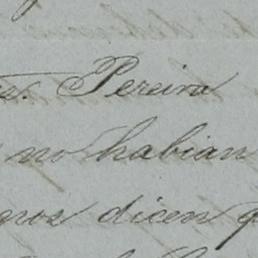 e. Pereira
no habian
nos dicen q